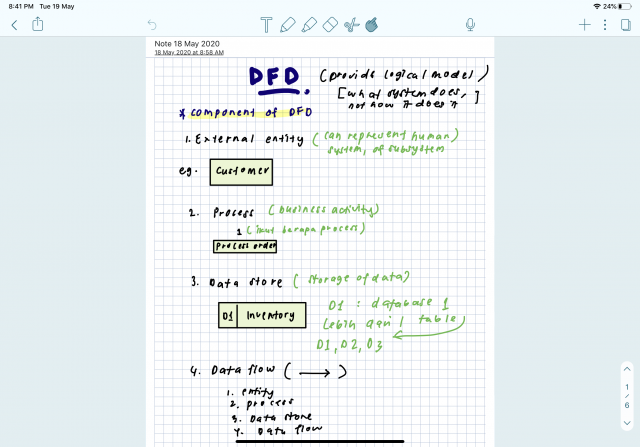 8:41 PM Tue 19 May
24%
Note 18 May 2020
18 May 2020 at 8:58 AM
DFD. (provide logical model)
[what system does,
not how it does it]
* component of DFD
1. External entity (can represent human)
system, of subsystem
eg. Customer
2. Process (business activity)
1 (ikut berapa process)
Process order
3. Data store (storage of data)
D1 Inventory
D1 : database 1
lebih dari 1 table)
D1, D2, D3
4. Data flow ( → )
1. entity
2. process
3. Data store
4. Data flow
1
/
6